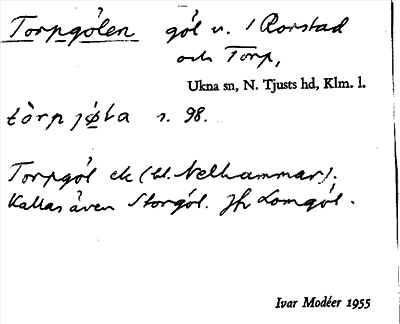 Torpgölen göl v. / Rorstad
och Torp,
Ukna sn, N. Tjusts hd, Klm. l.
tòrpjø̀la s. 98.
Torpgöl ek (bl. Nelhammar).
Kallas även Storgöl. Jfr Lomgöl.
Ivar Modéer 1955